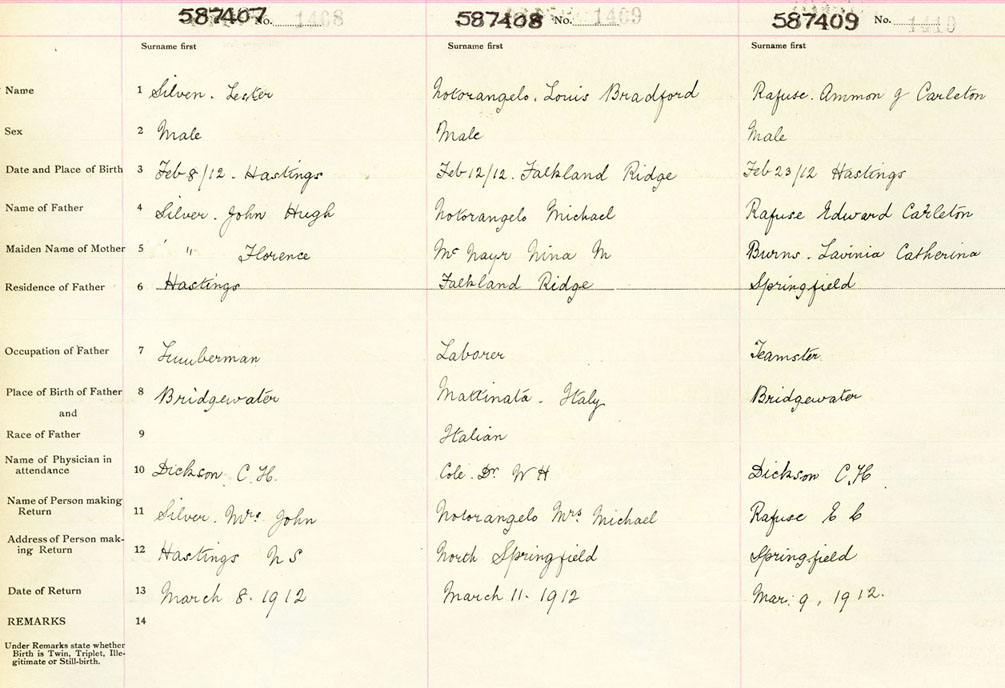 587407 No. 1408 587408 No. 1409 587409 No. 1410
Surname first Surname first Surname first
Name 1 Silven. Lester Notorangelo. Louis Bradford Rafuse. Ammon J Carleton
Sex 2 Male Male Male
Date and Place of Birth 3 Feb 8/12. Hastings Feb 12/12. Falkland Ridge Feb 23/12 Hastings
Name of Father 4 Silver. John Hugh Notorangelo Michael Rafuse Edward Carleton
Maiden Name of Mother 5 " " Florence Mc Nayr Nina M Burns. Lavinia Catherina
Residence of Father 6 Hastings Falkland Ridge Springfield
Occupation of Father 7 Lumberman Laborer Teamster
Place of Birth of Father 8 Bridgewater Mattinata. Italy Bridgewater
and
Race of Father 9 Italian
Name of Physician in
attendance 10 Dickson C. H. Cole. Dr. W H Dickson C. H
Name of Person making
Return 11 Silver. Mrs John Notorangelo Mrs Michael Rafuse E C
Address of Person mak-
ing Return 12 Hastings N S North Springfield Springfield
Date of Return 13 March 8. 1912 March 11. 1912 Mar. 9, 1912.
REMARKS 14
Under Remarks state whether
Birth is Twin, Triplet, Ille-
gitimate or Still-birth.